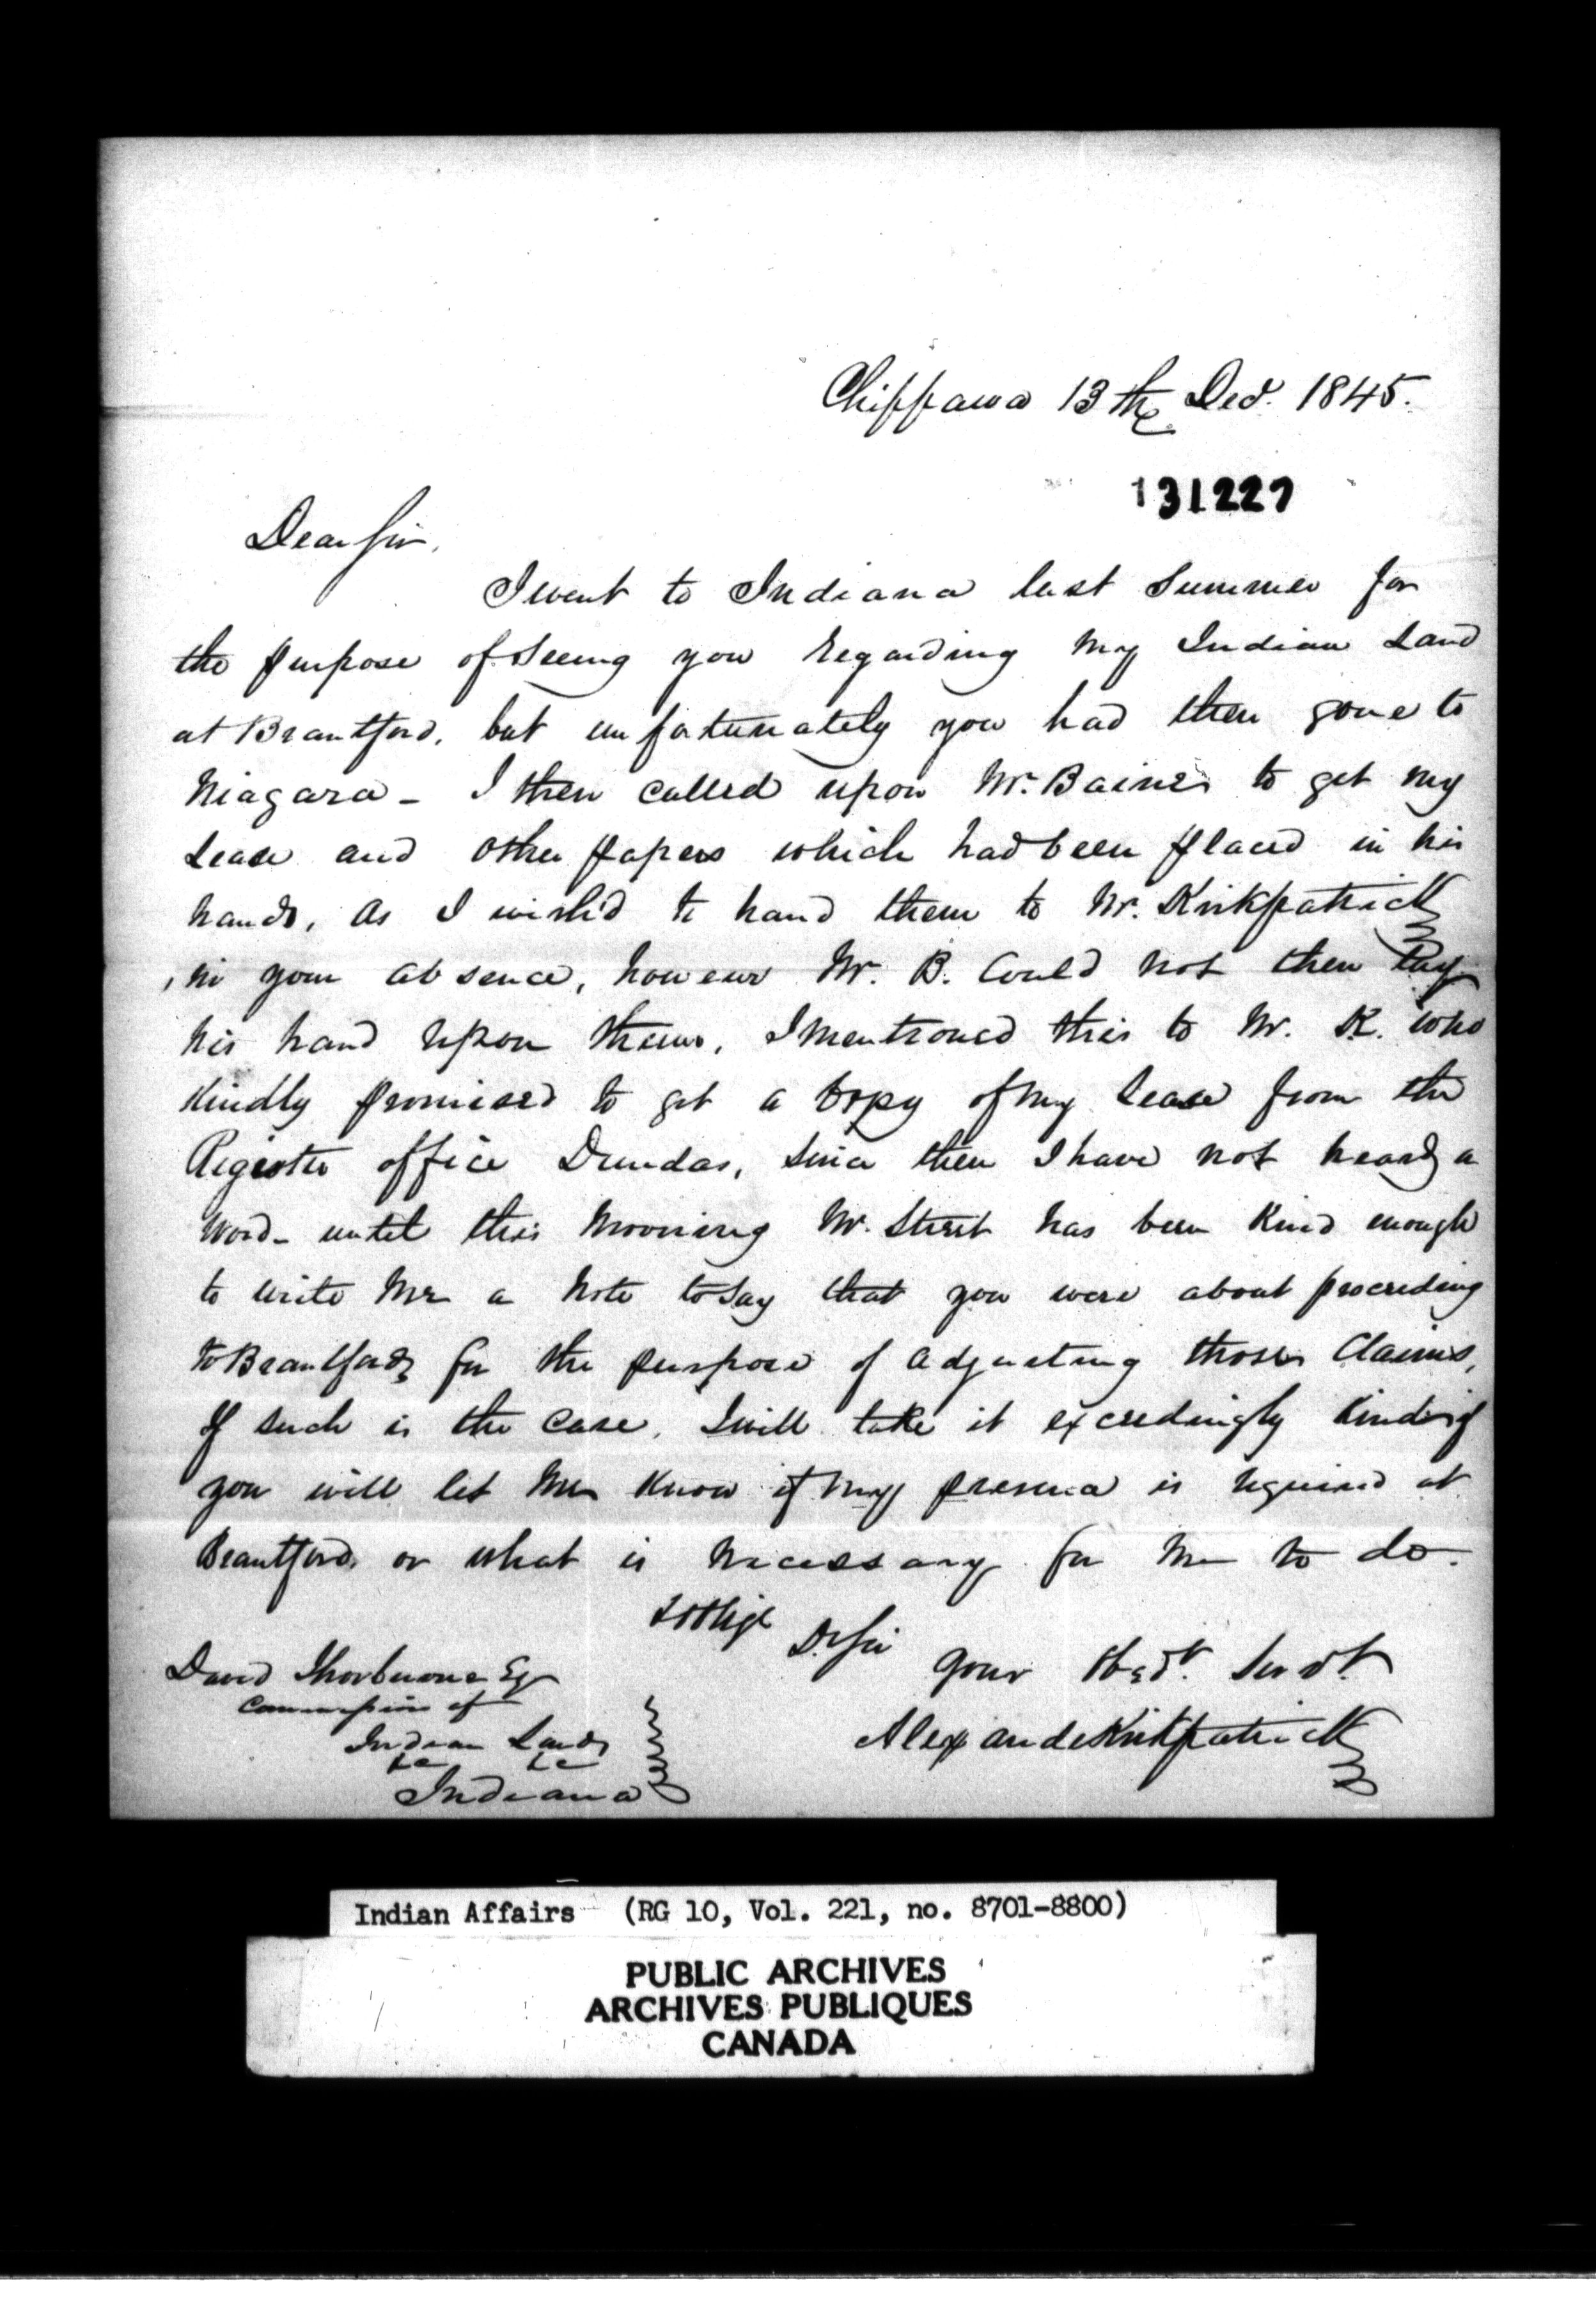 Chippawa 13th Decr. 1845.
131227
Dear Sir,
I went to Indiana last Summer for
the purpose of Seeing you Regarding my Indian Land
at Brantford, but unfortunately you had then gone to
Niagara - I then called upon Mr. Baines to get my
Lease and other papers which had been placed in his
hands, as I wish'd to hand them to Mr. Kirkpatrick
in your absence, however Mr. B. Could not then lay
his hand upon them, I mentioned this to Mr. K. who
Kindly promised to get a Copy of my Lease from the
Register office Dundas, since then I have not heard a
word - until this Morning Mr. Street has been Kind enough
to write me a note to say that you were about proceeding
to Brantford for the purpose of adjusting those Claims,
If such is the case, I will take it exceedingly Kind if
you will let me Know if my presence is required at
Brantford, or what is necessary for me to do.
&
Dr Sir
your Obedt. Servt.
David Thorburne Esqr
Alexander Kirkpatrick
Commission of
Indian Lands
&c &c
Indiana
Indian Affairs (RG 10, Vol. 221, no. 8701-8800)
PUBLIC ARCHIVES
ARCHIVES PUBLIQUES
CANADA